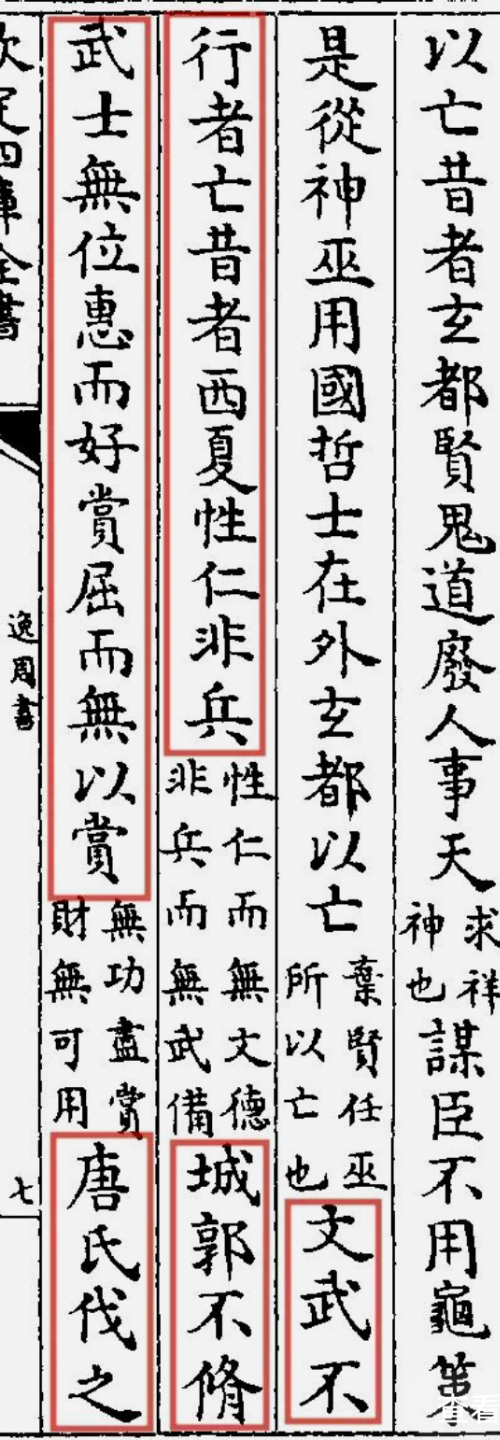 以亡昔者玄都賢鬼道廢人事天求祥神也謀臣不用龜筴
是從神巫用國哲士在外玄都以亡棄賢任巫所以亡也文武不
行者亡昔者西夏性仁非兵性仁而無文德非兵而無武備城郭不脩
武士無位惠而好賞屈而無以賞無功盡賞財無可用唐氏伐之
欽定四庫全書
逸周書
七
查看